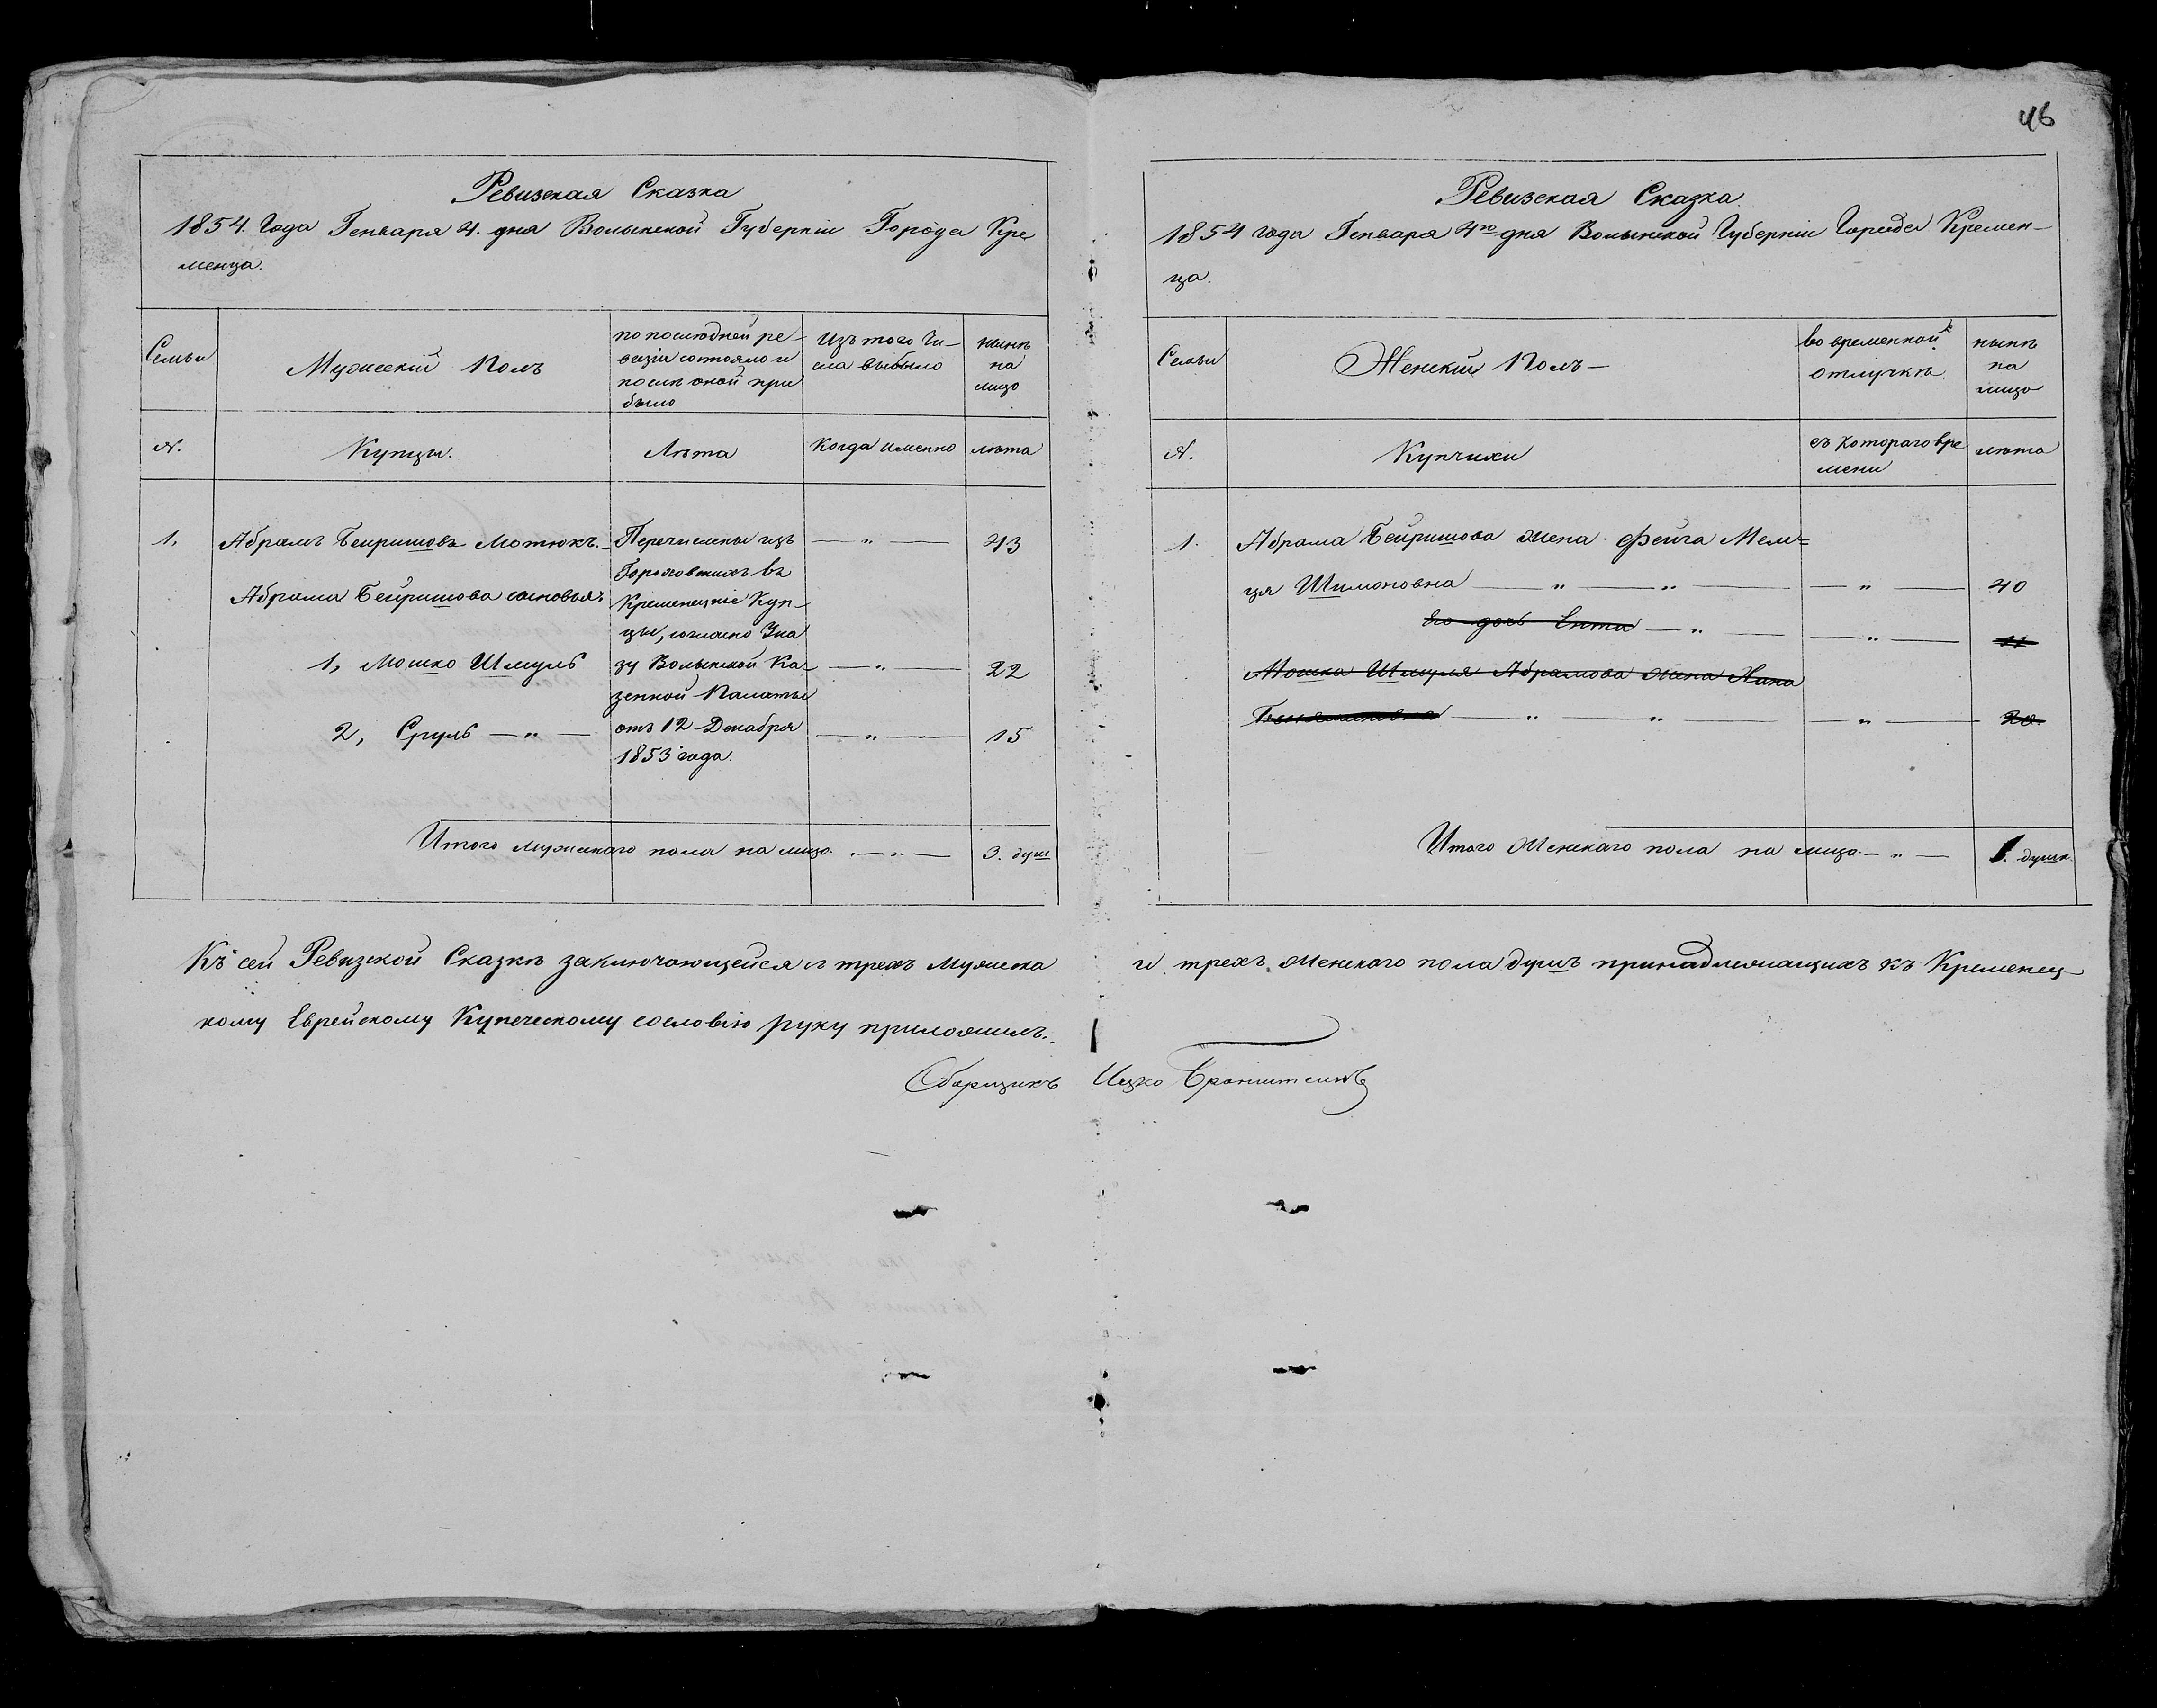 46
Ревизская Сказка
1854. Года Генваря 4. дня Волынской Губерніи Города Кре
менца.
Семьи
Мужескій Полъ
по последней ре-
визіи состояло и
после оной при
было
Изъ того Чи-
сла выбыло
ныне
на
лицо
№.
Купцы.
Лѣта
Когда именно
лѣта
1.
Абрамъ Беиришовъ Мотюкъ.
Перечислены изъ
Гороховскихъ въ
Кременецкіе Куп-
цы, согласно Ука
зу Волынской Ка-
зенной Палаты
отъ 12 Декабря
1853 года.
— " —
43
Абрама Беиришова сыновья:
1, Мошко Шмуль
— " —
22
2, Сруль — " —
— " —
15
Итого мужескаго пола на лицо. — " —
3. душ
Ревизская Сказка
1854 года Генваря 4го дня Волынской Губерніи Города Кремен-
ца.
Семьи
Женскій Полъ —
во временной
отлучкѣ
нынѣ
на
лицо
№.
Купчихи
съ котораго вре
мени
лѣта
1.
Абрама Беиришова жена Фейга Мем=
ця Шимоновна — " — " —
— " —
40
Его дочь Ента — " —
— " —
11
Мошка Шмуля Абрамова жена Хана
— " — " —
— " —
20.
Итого Женскаго пола на лицо — " —
1. душа.
Къ сей Ревизской Сказкѣ заключающейся в трехъ Мужеска
и трехъ Женскаго пола душъ принадлежащихъ къ Кременец-
кому Еврейскому Купеческому сословію руку приложилъ.
Сборщикъ Ицко